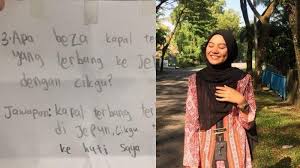 3. Apa beza kapal te
yang terbang ke Je
dengan cikgu?
Jawapan: kapal terbang te
di Jepun, Cikgu
ke hati saya